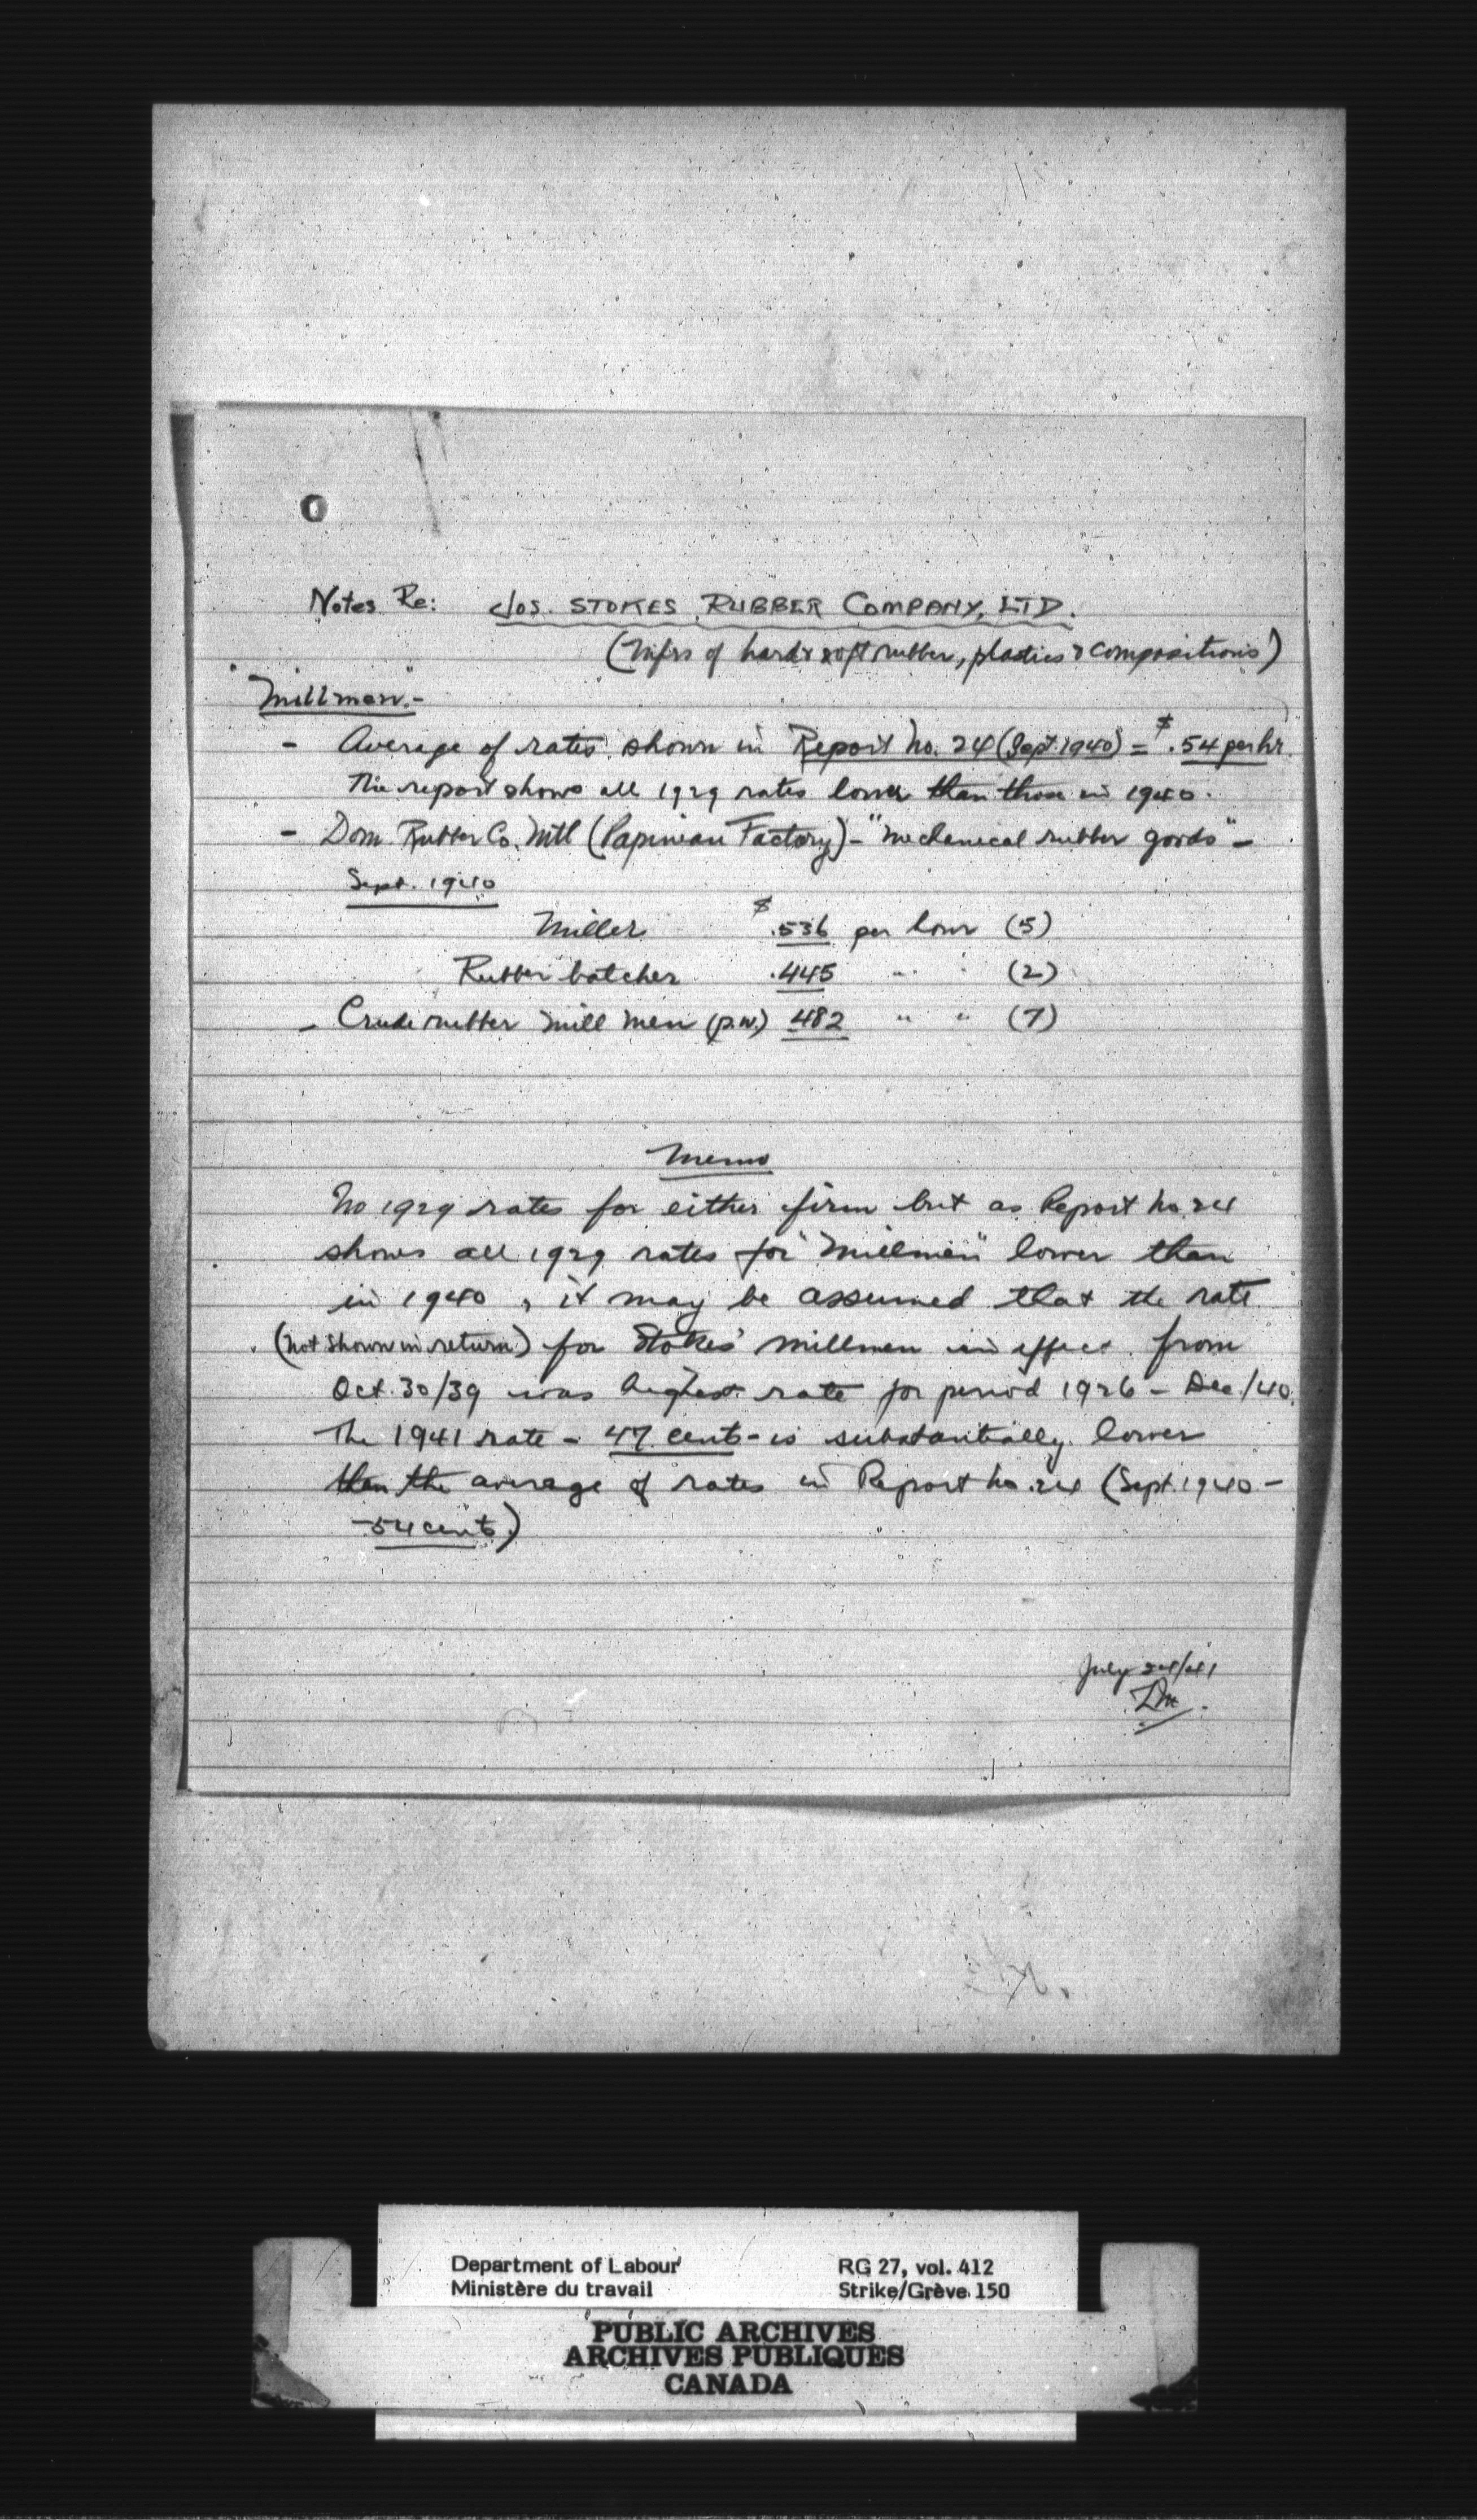 Notes Re: Jos. STOKES RUBBER COMPANY, LTD.
(Mfrs of hard & soft rubber, plastics & compositions)
"Millman".-
- Average of rates shown in Report No. 24 (Sept. 1940) = $.54 per hr.
The report shows all 1929 rates lower than those in 1940.
- Dom. Rubber Co. Mtl (Papineau Factory) - "mechanical rubber goods" -
Sept. 1940
Miller $.536 per hour (5)
Rubber batcher .445 " " (2)
- Crude rubber mill men (p.w.) 482 " " (7)
Memo
No 1929 rates for either firm but as Report No. 24
shows all 1929 rates for "millmen" lower than
in 1940, it may be assumed that the rate
(not shown in return) for Stokes' millmen in effect from
Oct. 30/39 was highest rate for period 1926 - Dec./40.
The 1941 rate - 47 cents - is substantially lower
than the average of rates in Report No. 24 (Sept. 1940 -
- 54 cents.)
July 24/41
Department of Labour RG 27, vol. 412
Ministère du travail Strike/Grève 150
PUBLIC ARCHIVES
ARCHIVES PUBLIQUES
CANADA